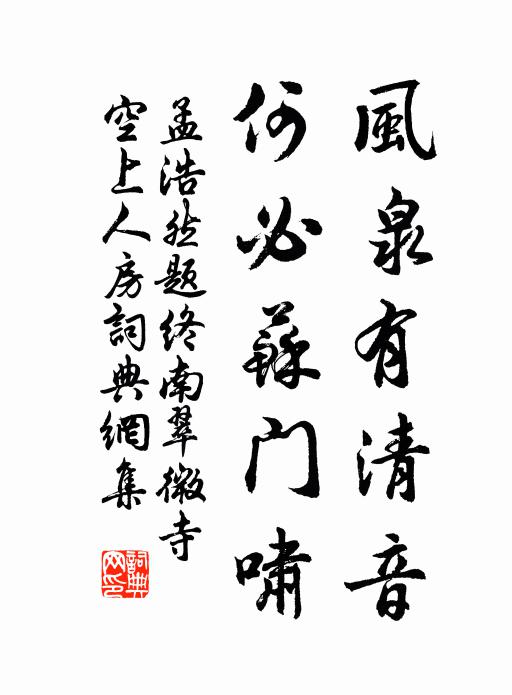 風泉有清音
何必蘇門嘯
孟浩然题终南翠微寺
空上人房詞典網集
詞典
网印